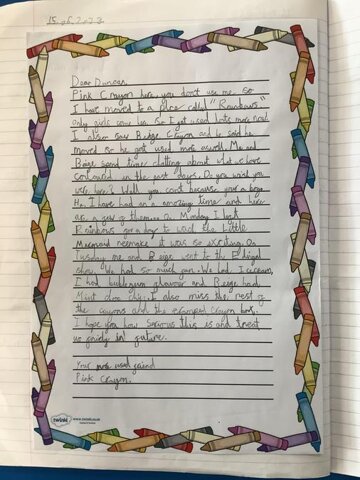 Dear Duncan
Pink Crayon here, you don't use me. so
I have moved to a place called "Rainbows"
only girls come up. So I get used lots more now
I also saw Beige Crayon and he said he
moved so he gets used more aswell. Me and
Beige spend time chatting about what we have
coloured in the past days. Do you wish you
were here? Well you cant because your a boy.
Ha. I have had an amazing time and here
are a few of them. On Monday I left
Rainbows for a day to wach the little
Mermaid it was so exciting. On
Tuesday me and Beige went to the
show. We had so much fun. We had Icecream,
I had bubblegum flavour and Beige had
Mint choc chip. I also miss the rest of
the crayons and the crayon box.
I hope you how Serious this is and treat
us in future.
Your used friend
Pink Crayon.
twinkl www.twinkl.co.uk